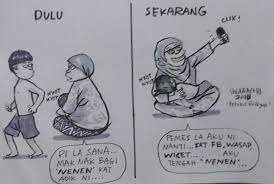 DULU
NYOT
NYOT
PI LA SANA...
MAK NAK BAGI
'NENEN' KAT
ADIK NI...
SEKARANG
CLIK!
NYOT
NYOT
2018
FEMES LA AKU NI
NANTI... KAT FB, WASAP
WICET..... AKU
TENGAH 'NENEN'...